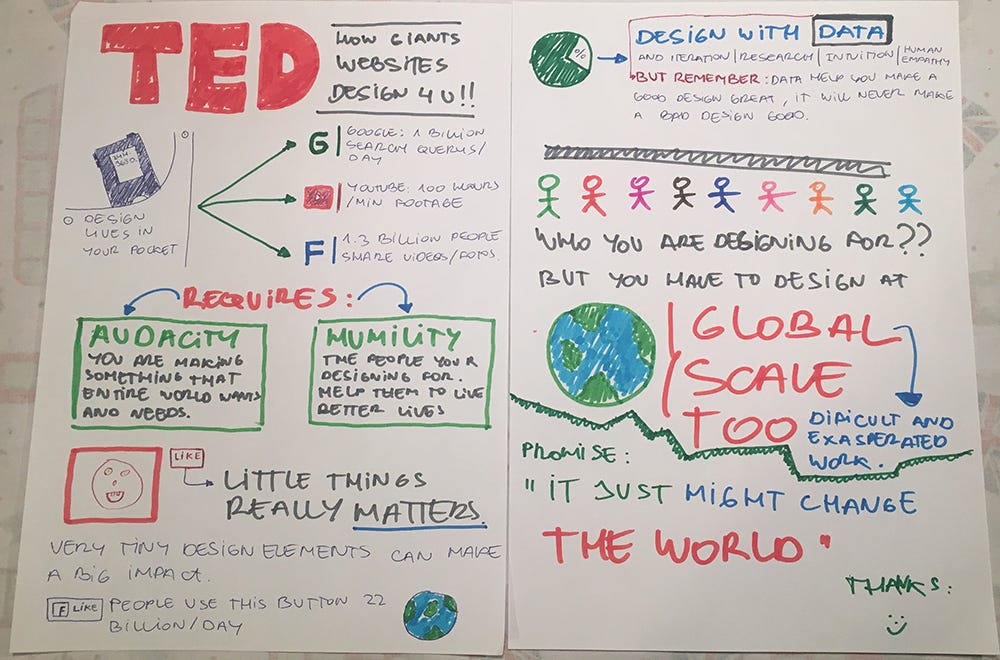 TED
HOW GIANTS
WEBSITES
DESIGN 4 U!!
O DESIGN
LIVES IN
YOUR POCKET
G
GOOGLE: 1 BILLION
SEARCH QUERYS/
DAY
YOUTUBE: 100 HOURS
/MIN FOOTAGE
F
1.3 BILLION PEOPLE
SHARE VIDEOS/FOTOS.
REQUIRES:
AUDACITY
YOU ARE MAKING
SOMETHING THAT
ENTIRE WORLD WANTS
AND NEEDS.
HUMILITY
THE PEOPLE YOUR
DESIGNING FOR.
HELP THEM TO LIVE
BETTER LIVES
LIKE
LITTLE THINGS
REALLY MATTERS.
VERY TINY DESIGN ELEMENTS CAN MAKE
A BIG IMPACT.
F LIKE
PEOPLE USE THIS BUTTON 22
BILLION/DAY
%
DESIGN WITH DATA
AND ITERATION | RESEARCH | INTUITION | HUMAN
EMPATHY
BUT REMEMBER: DATA HELP YOU MAKE A
GOOD DESIGN GREAT, IT WILL NEVER MAKE
A BAD DESIGN GOOD.
WHO YOU ARE DESIGNING FOR??
BUT YOU HAVE TO DESIGN AT
GLOBAL
SCALE
TOO
DIFICULT AND
EXASPERATED
WORK.
PROMISE:
"IT JUST MIGHT CHANGE
THE WORLD"
THANKS: